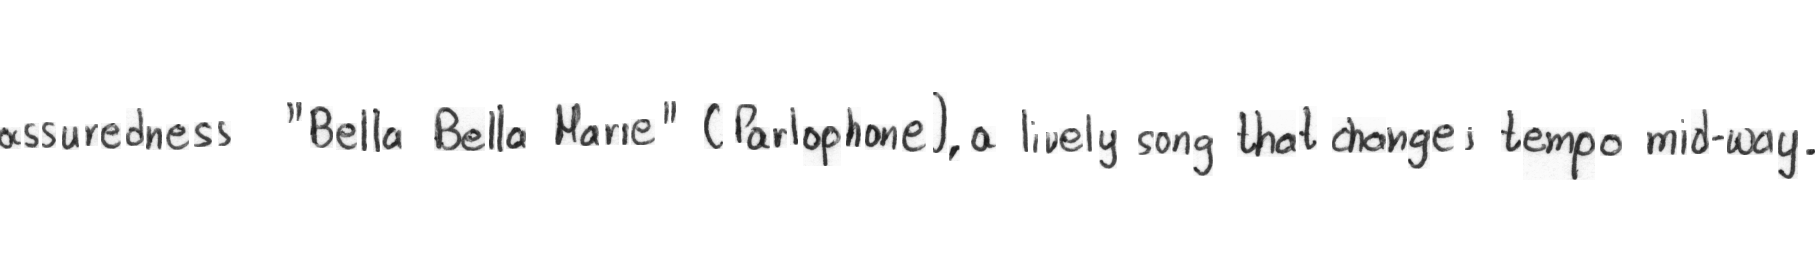 assuredness "Bella Bella Marie" (Parlophone), a lively song that changes tempo mid-way.